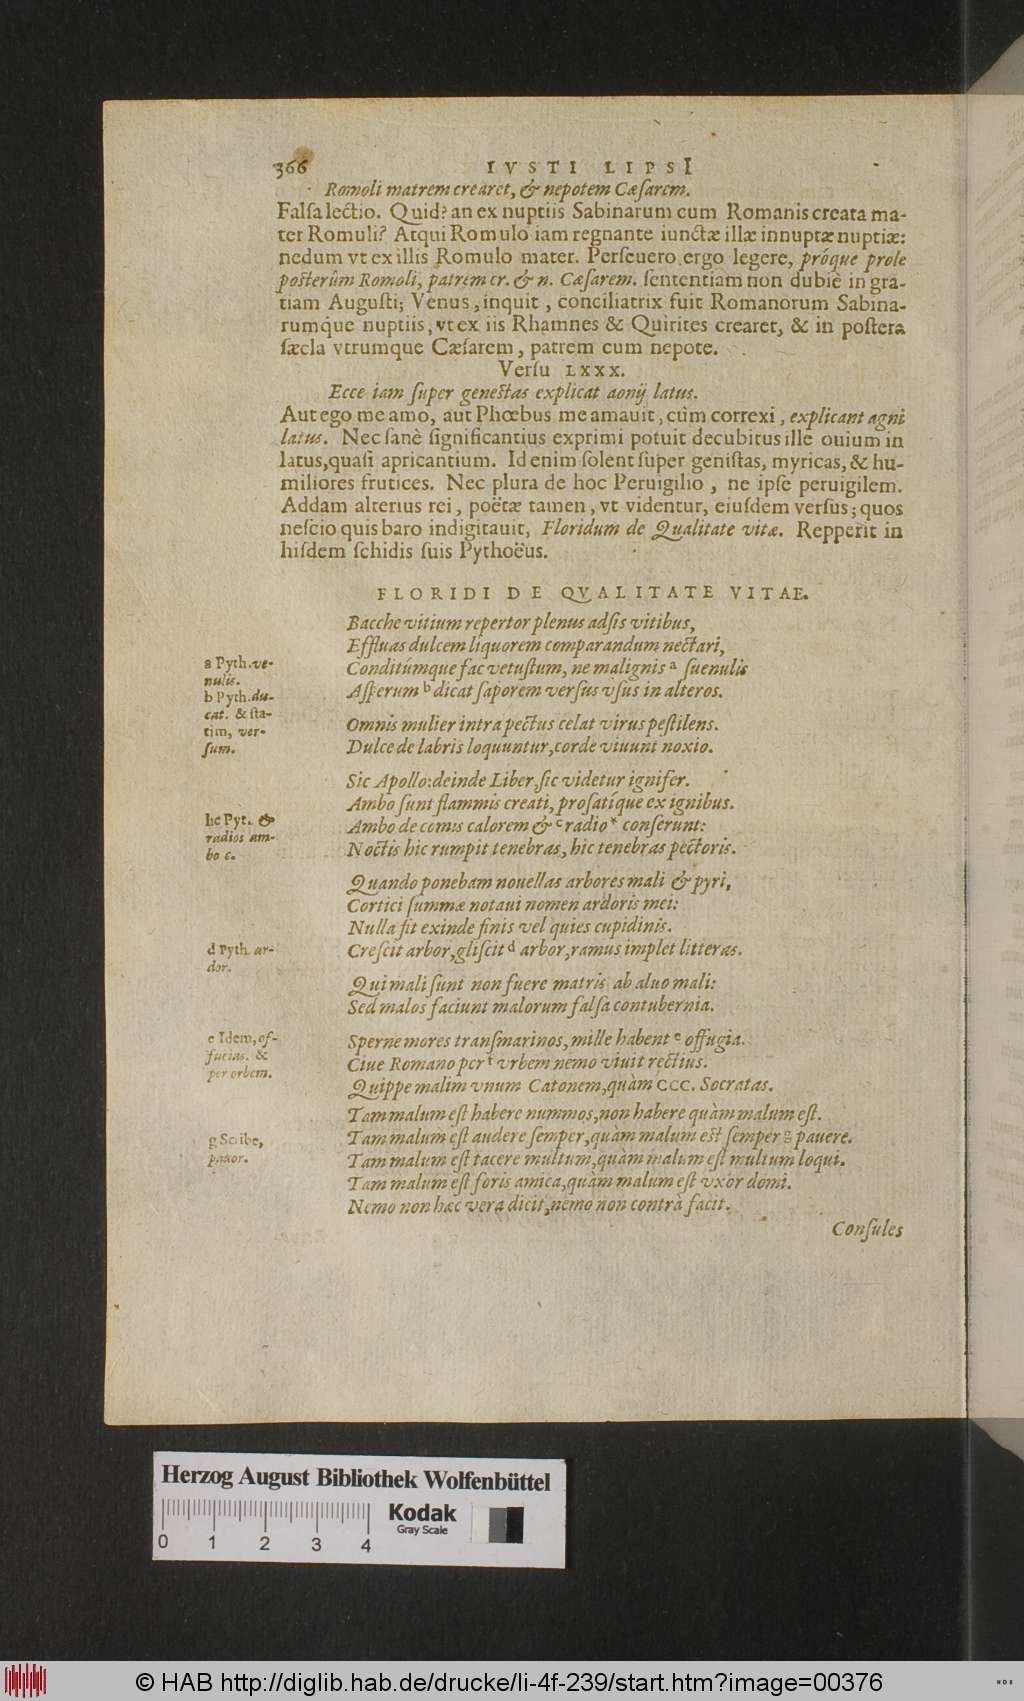 366 IVSTI LIPSI
Romoli matrem crearet, & nepotem Cæsarem.
Falsa lectio. Quid? an ex nuptiis Sabinarum cum Romanis creata ma-
ter Romuli? Atqui Romulo iam regnante iunctæ illæ innuptæ nuptiæ:
nedum vt ex illis Romulo mater. Perseuero ergo legere, próque prole
posterûm Romoli, patrem cr. & n. Cæsarem. sententiam non dubiè in gra-
tiam Augusti; Venus, inquit, conciliatrix fuit Romanorum Sabina-
rumq́ue nuptiis, vt ex iis Rhamnes & Quirites crearet, & in postera
sæcla vtrumque Cæsarem, patrem cum nepote.
Versu LXXX.
Ecce iam super genestas explicat aonij latus.
Aut ego me amo, aut Phœbus me amauit, cùm correxi, explicant agni
latus. Nec sanè significantius exprimi potuit decubitus ille ouium in
latus, quasi apricantium. Id enim solent super genistas, myricas, & hu-
miliores frutices. Nec plura de hoc Peruigilio, ne ipse peruigilem.
Addam alterius rei, poëtæ tamen, vt videntur, eiusdem versus; quos
nescio quis baro indigitauit, Floridum de Qualitate vitæ. Repperit in
hisdem schidis suis Pythoëus.
FLORIDI DE QVALITATE VITAE.
Bacche vitium repertor plenus adsis vitibus,
Effluas dulcem liquorem comparandum nectari,
Conditúmque fac vetustum, ne malignis a suenulis
Asperum b dicat saporem versus vsus in alteros.
a Pyth. ve-
nulis.
b Pyth. du-
cat. & sta-
tim, ver-
sum.
Omnis mulier intra pectus celat virus pestilens.
Dulce de labris loquuntur, corde viuunt noxio.
Sic Apollo: deinde Liber, sic videtur ignifer.
Ambo sunt flammis creati, prosatique ex ignibus.
Ambo de comis calorem & c radio* conserunt:
Noctis hic rumpit tenebras, hic tenebras pectoris.
hc Pyt. &
radios am-
bo c.
Quando ponebam nouellas arbores mali & pyri,
Cortici summæ notaui nomen ardoris mei:
Nulla fit exinde finis vel quies cupidinis.
Crescit arbor, gliscit d arbor, ramus implet litteras.
d Pyth. ar-
dor.
Qui mali sunt non fuere matris ab aluo mali:
Sed malos faciunt malorum falsa contubernia.
Sperne mores transmarinos, mille habent e offugia.
Ciue Romano per f vrbem nemo viuit rectius.
Quippe malim vnum Catonem, quàm CCC. Socratas.
e Idem, of-
fucias. &
per orbem.
Tam malum est habere nummos, non habere quàm malum est.
Tam malum est audere semper, quàm malum est semper g pauere.
Tam malum est tacere multum, quàm malum est multum loqui.
Tam malum est foris amica, quàm malum est vxor domi.
Nemo non hæc vera dicit, nemo non contrà facit.
g Scribe,
pauor.
Consules
Herzog August Bibliothek Wolfenbüttel
Kodak
Gray Scale
0 1 2 3 4
© HAB http://diglib.hab.de/drucke/li-4f-239/start.htm?image=00376